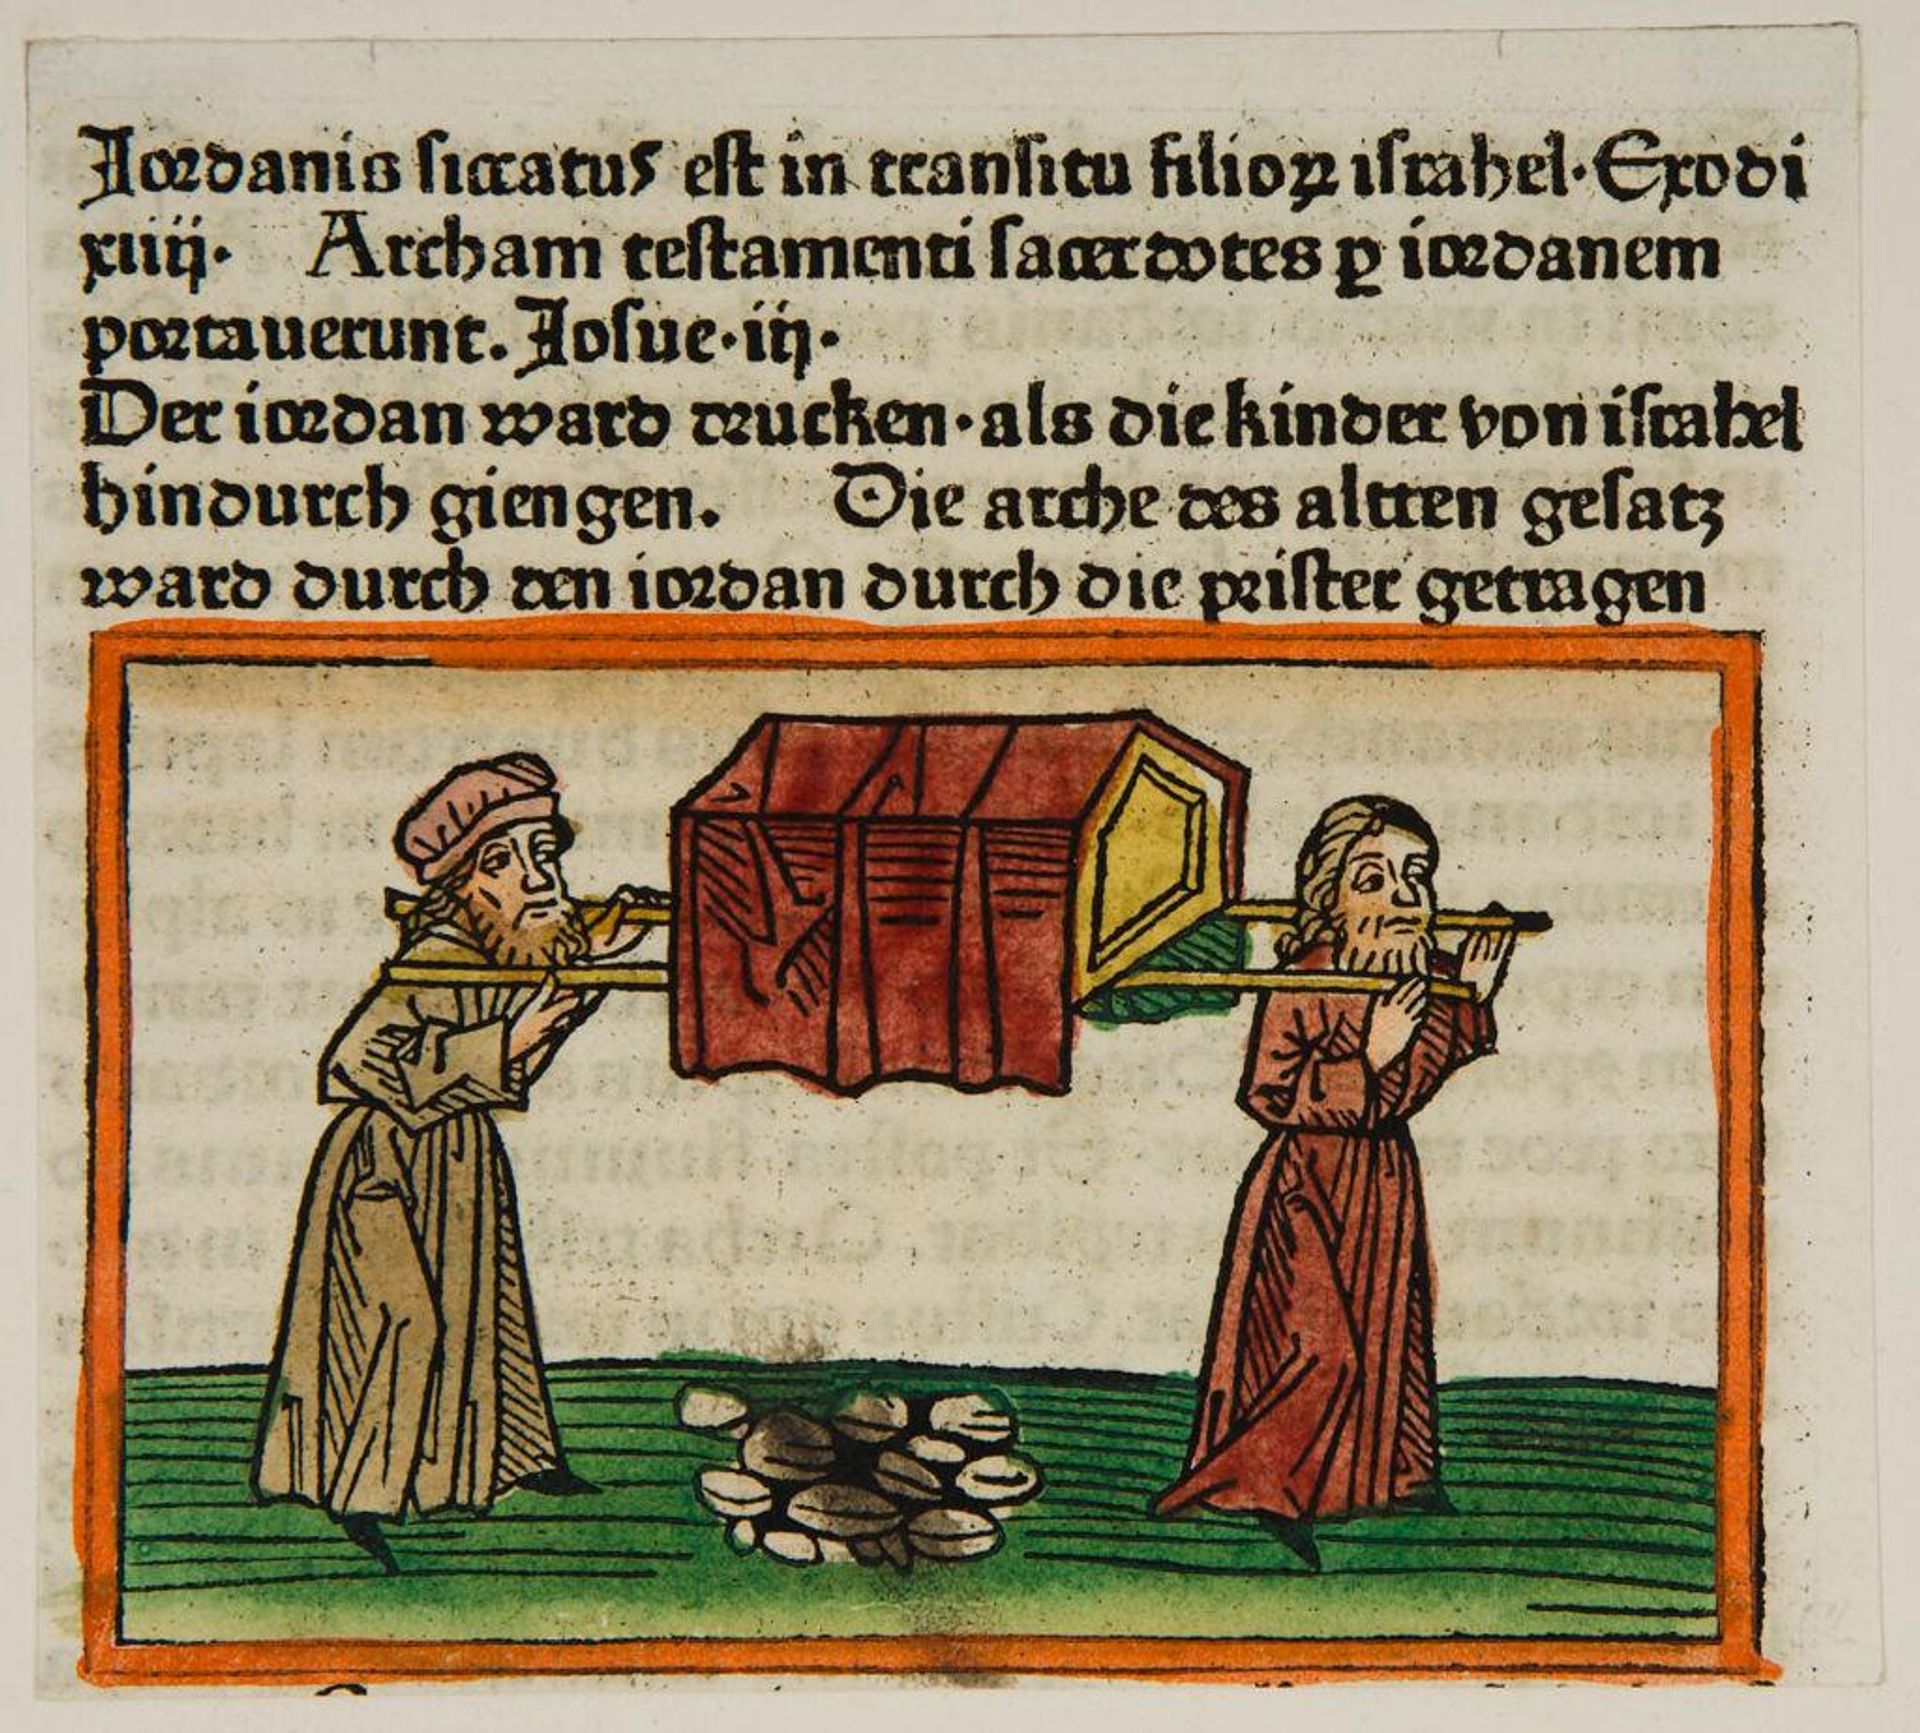 Iordanis siccatus est in transitu filioꝝ israhel·Exodi
xiiij· Archam testamenti sacerdotes ꝑ iordanem
portauerunt. Iosue·iij·
Der iordan ward trucken·als die kinder von israhel
hindurch giengen. Die arche des altten gesatz
ward durch den iordan durch die prister getragen